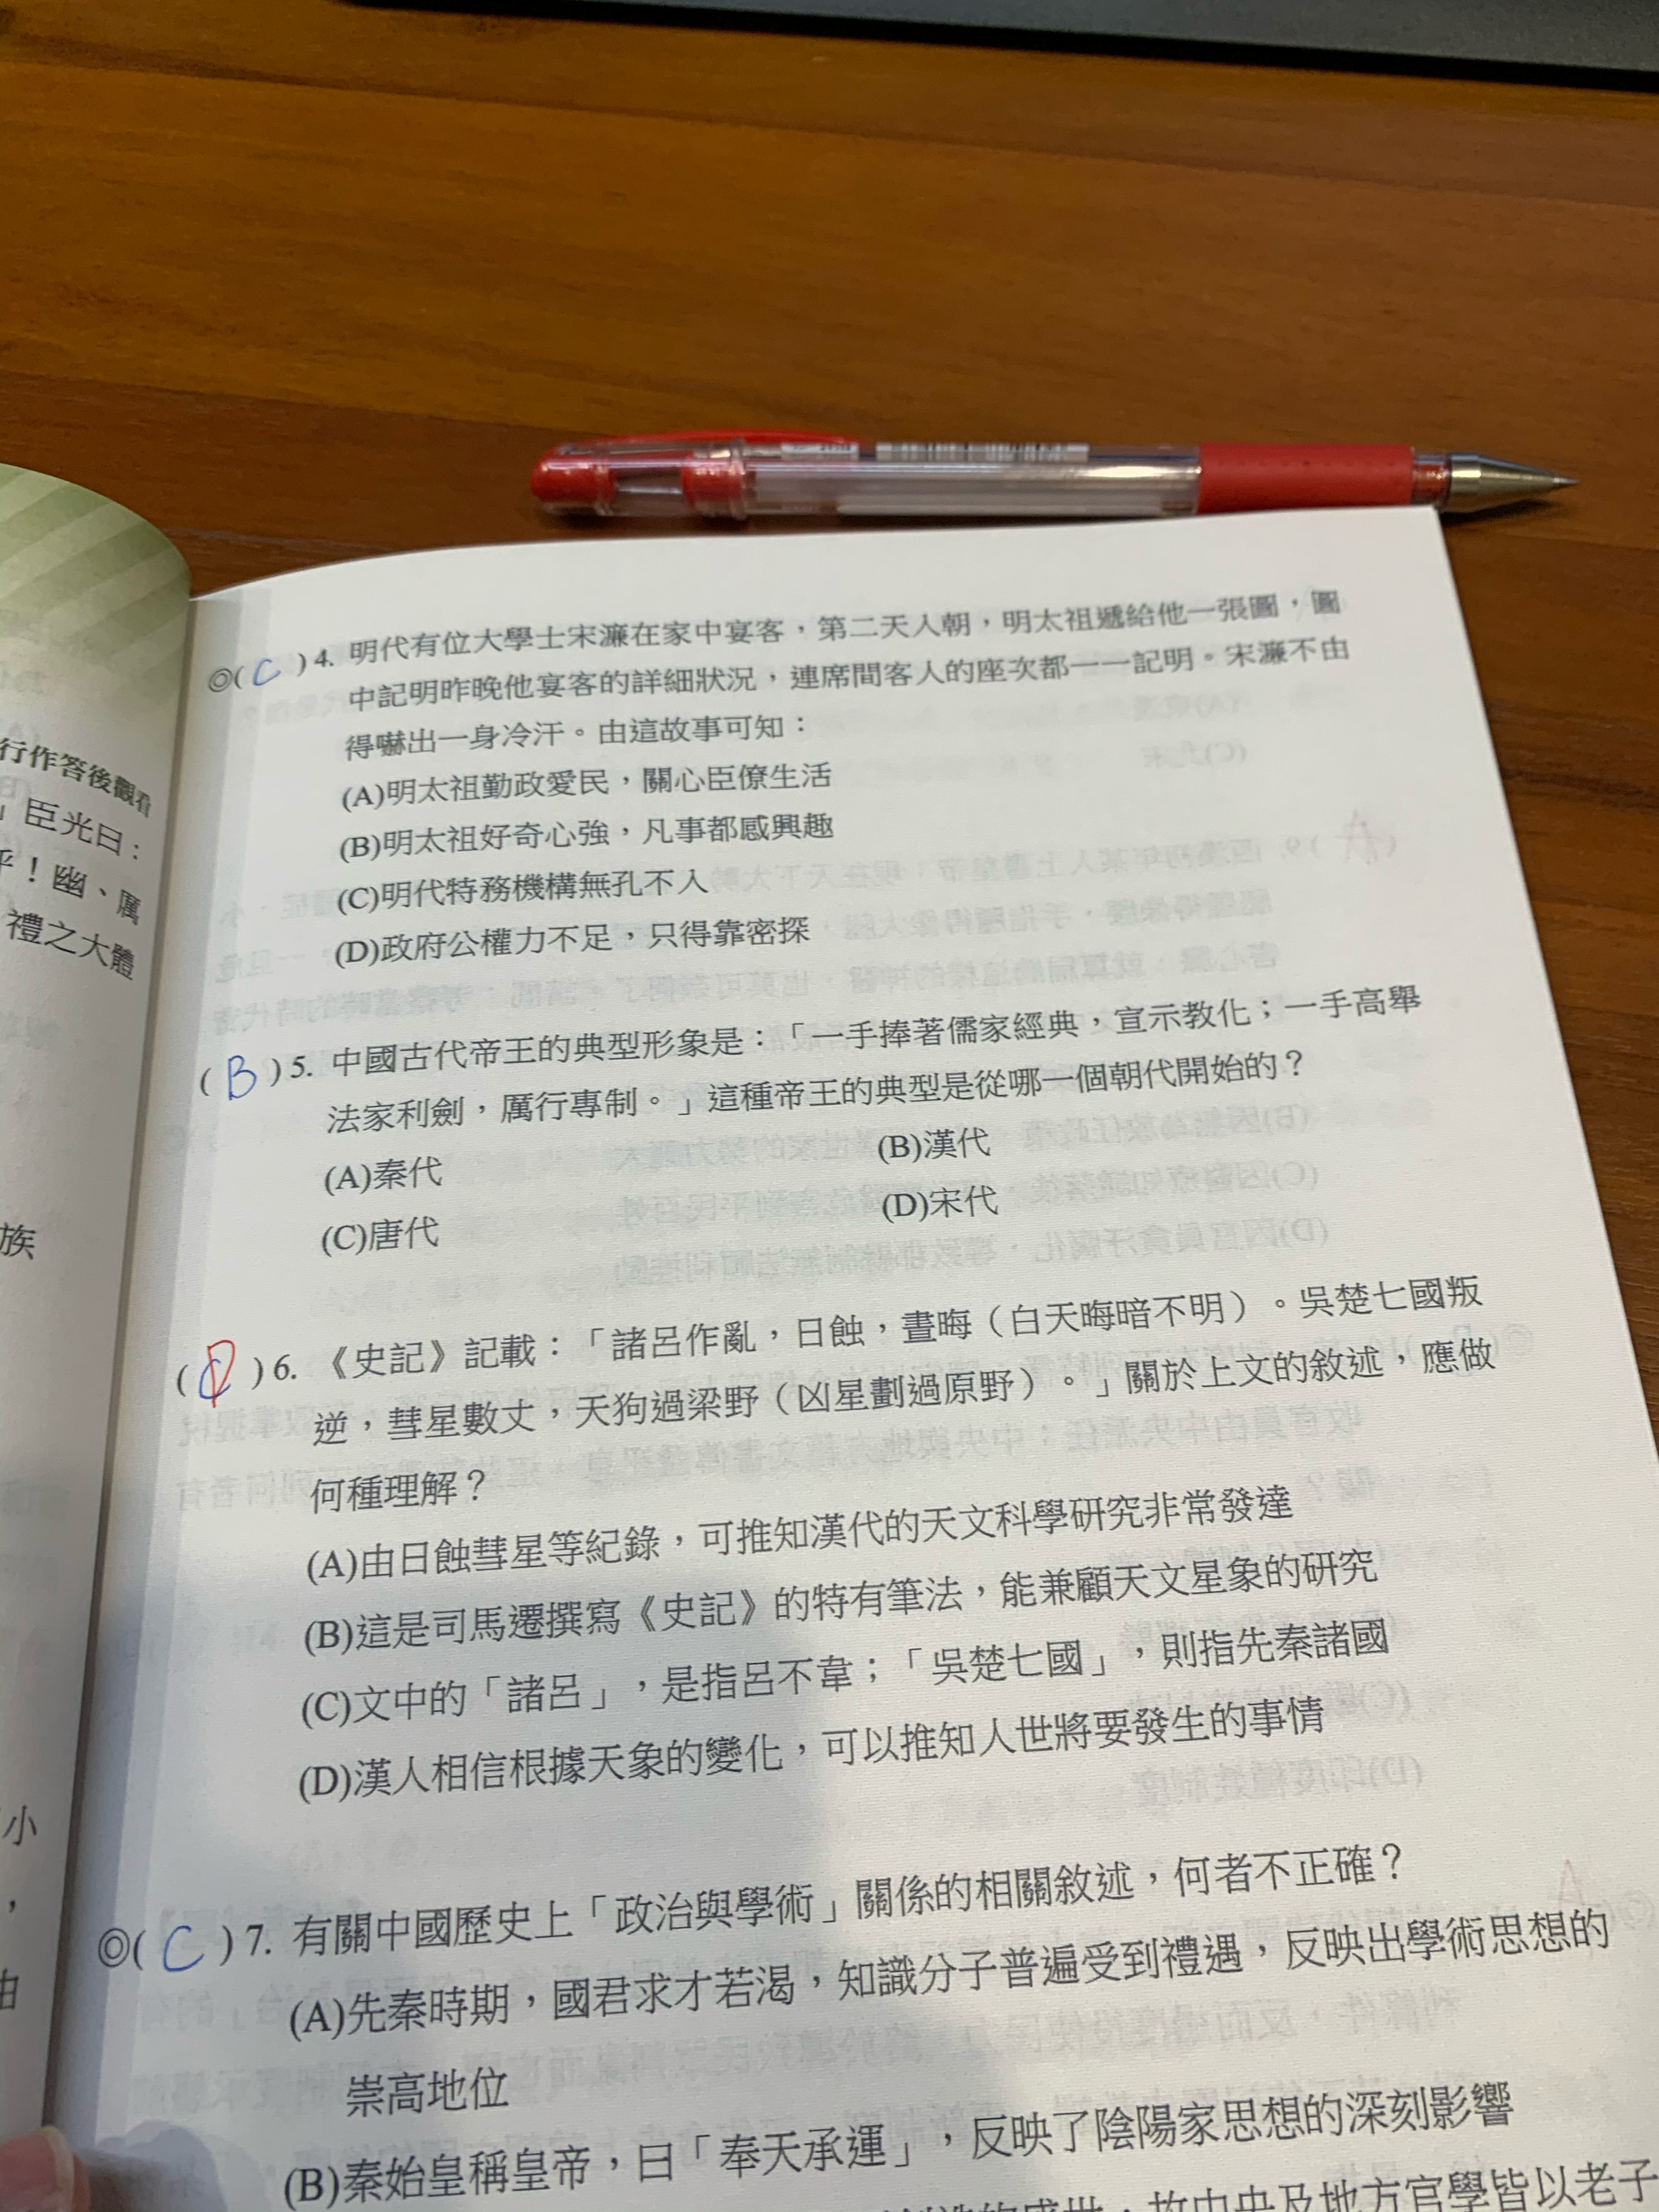 行作答後觀看
」臣光曰：
乎！幽、厲
禮之大體
族
小
，
由
◎( C ) 4. 明代有位大學士宋濂在家中宴客，第二天入朝，明太祖遞給他一張圖，圖
中記明昨晚他宴客的詳細狀況，連席間客人的座次都一一記明。宋濂不由
得嚇出一身冷汗。由這故事可知：
(A)明太祖勤政愛民，關心臣僚生活
(B)明太祖好奇心強，凡事都感興趣
(C)明代特務機構無孔不入
(D)政府公權力不足，只得靠密探
( B ) 5. 中國古代帝王的典型形象是：「一手捧著儒家經典，宣示教化；一手高舉
法家利劍，厲行專制。」這種帝王的典型是從哪一個朝代開始的？
(A)秦代 (B)漢代
(C)唐代 (D)宋代
( D ) 6. 《史記》記載：「諸呂作亂，日蝕，晝晦（白天晦暗不明）。吳楚七國叛
逆，彗星數丈，天狗過梁野（凶星劃過原野）。」關於上文的敘述，應做
何種理解？
(A)由日蝕彗星等紀錄，可推知漢代的天文科學研究非常發達
(B)這是司馬遷撰寫《史記》的特有筆法，能兼顧天文星象的研究
(C)文中的「諸呂」，是指呂不韋；「吳楚七國」，則指先秦諸國
(D)漢人相信根據天象的變化，可以推知人世將要發生的事情
◎( C ) 7. 有關中國歷史上「政治與學術」關係的相關敘述，何者不正確？
(A)先秦時期，國君求才若渴，知識分子普遍受到禮遇，反映出學術思想的
崇高地位
(B)秦始皇稱皇帝，曰「奉天承運」，反映了陰陽家思想的深刻影響
的盛世，故中央及地方官學皆以老子